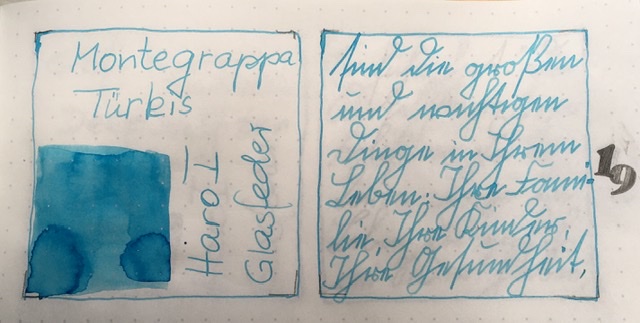 Montegrappa
Türkis
Haro
Glasfeder
sind die großen
und wichtigen
Dinge in Ihrem
Leben: Ihre Fami-
lie, Ihre Kinder,
Ihre Gesundheit,
19